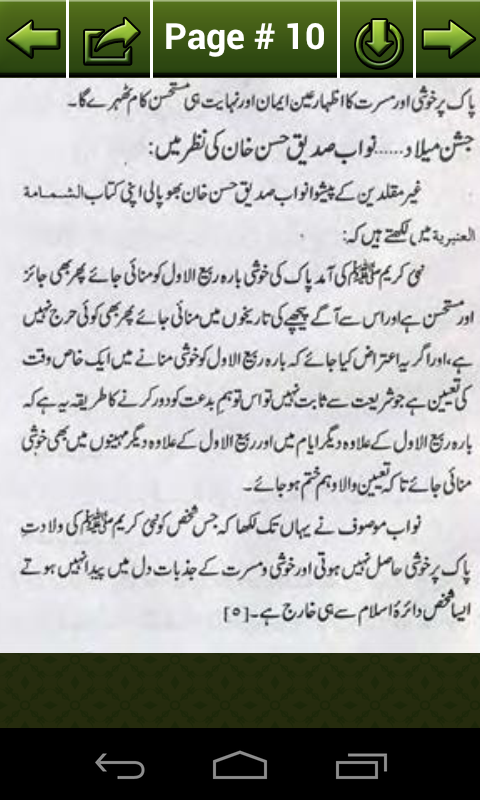 Page # 10
پاک پر خوشی اور مسرت کا اظہار عین ایمان اور نہایت ہی مستحسن کام ٹھہرے گا۔
جشن میلاد......نواب صدیق حسن خان کی نظر میں:
غیر مقلدین کے پیشوا نواب صدیق حسن خان بھوپالی اپنی کتاب الشمامة
العنبرية میں لکھتے ہیں کہ:
نبی کریم ﷺ کی آمد پاک کی خوشی بارہ ربیع الاول کو منائی جائے پھر بھی جائز
اور مستحسن ہے اور اس سے آگے پیچھے کی تاریخوں میں منائی جائے پھر بھی کوئی حرج نہیں
ہے، اور اگر یہ اعتراض کیا جائے کہ بارہ ربیع الاول کو خوشی منانے میں ایک خاص وقت
کی تعیین ہے جو شریعت سے ثابت نہیں تو اس توہم بدعت کو دور کرنے کا طریقہ یہ ہے کہ
بارہ ربیع الاول کے علاوہ دیگر ایام میں اور ربیع الاول کے علاوہ دیگر مہینوں میں بھی خوشی
منائی جائے تاکہ تعیین والا وہم ختم ہو جائے۔
نواب موصوف نے یہاں تک لکھا کہ جس شخص کو نبی کریم ﷺ کی ولادتِ
پاک پر خوشی حاصل نہیں ہوتی اور خوشی و مسرت کے جذبات دل میں پیدا نہیں ہوتے
ایسا شخص دائرۂ اسلام سے ہی خارج ہے۔[۵]